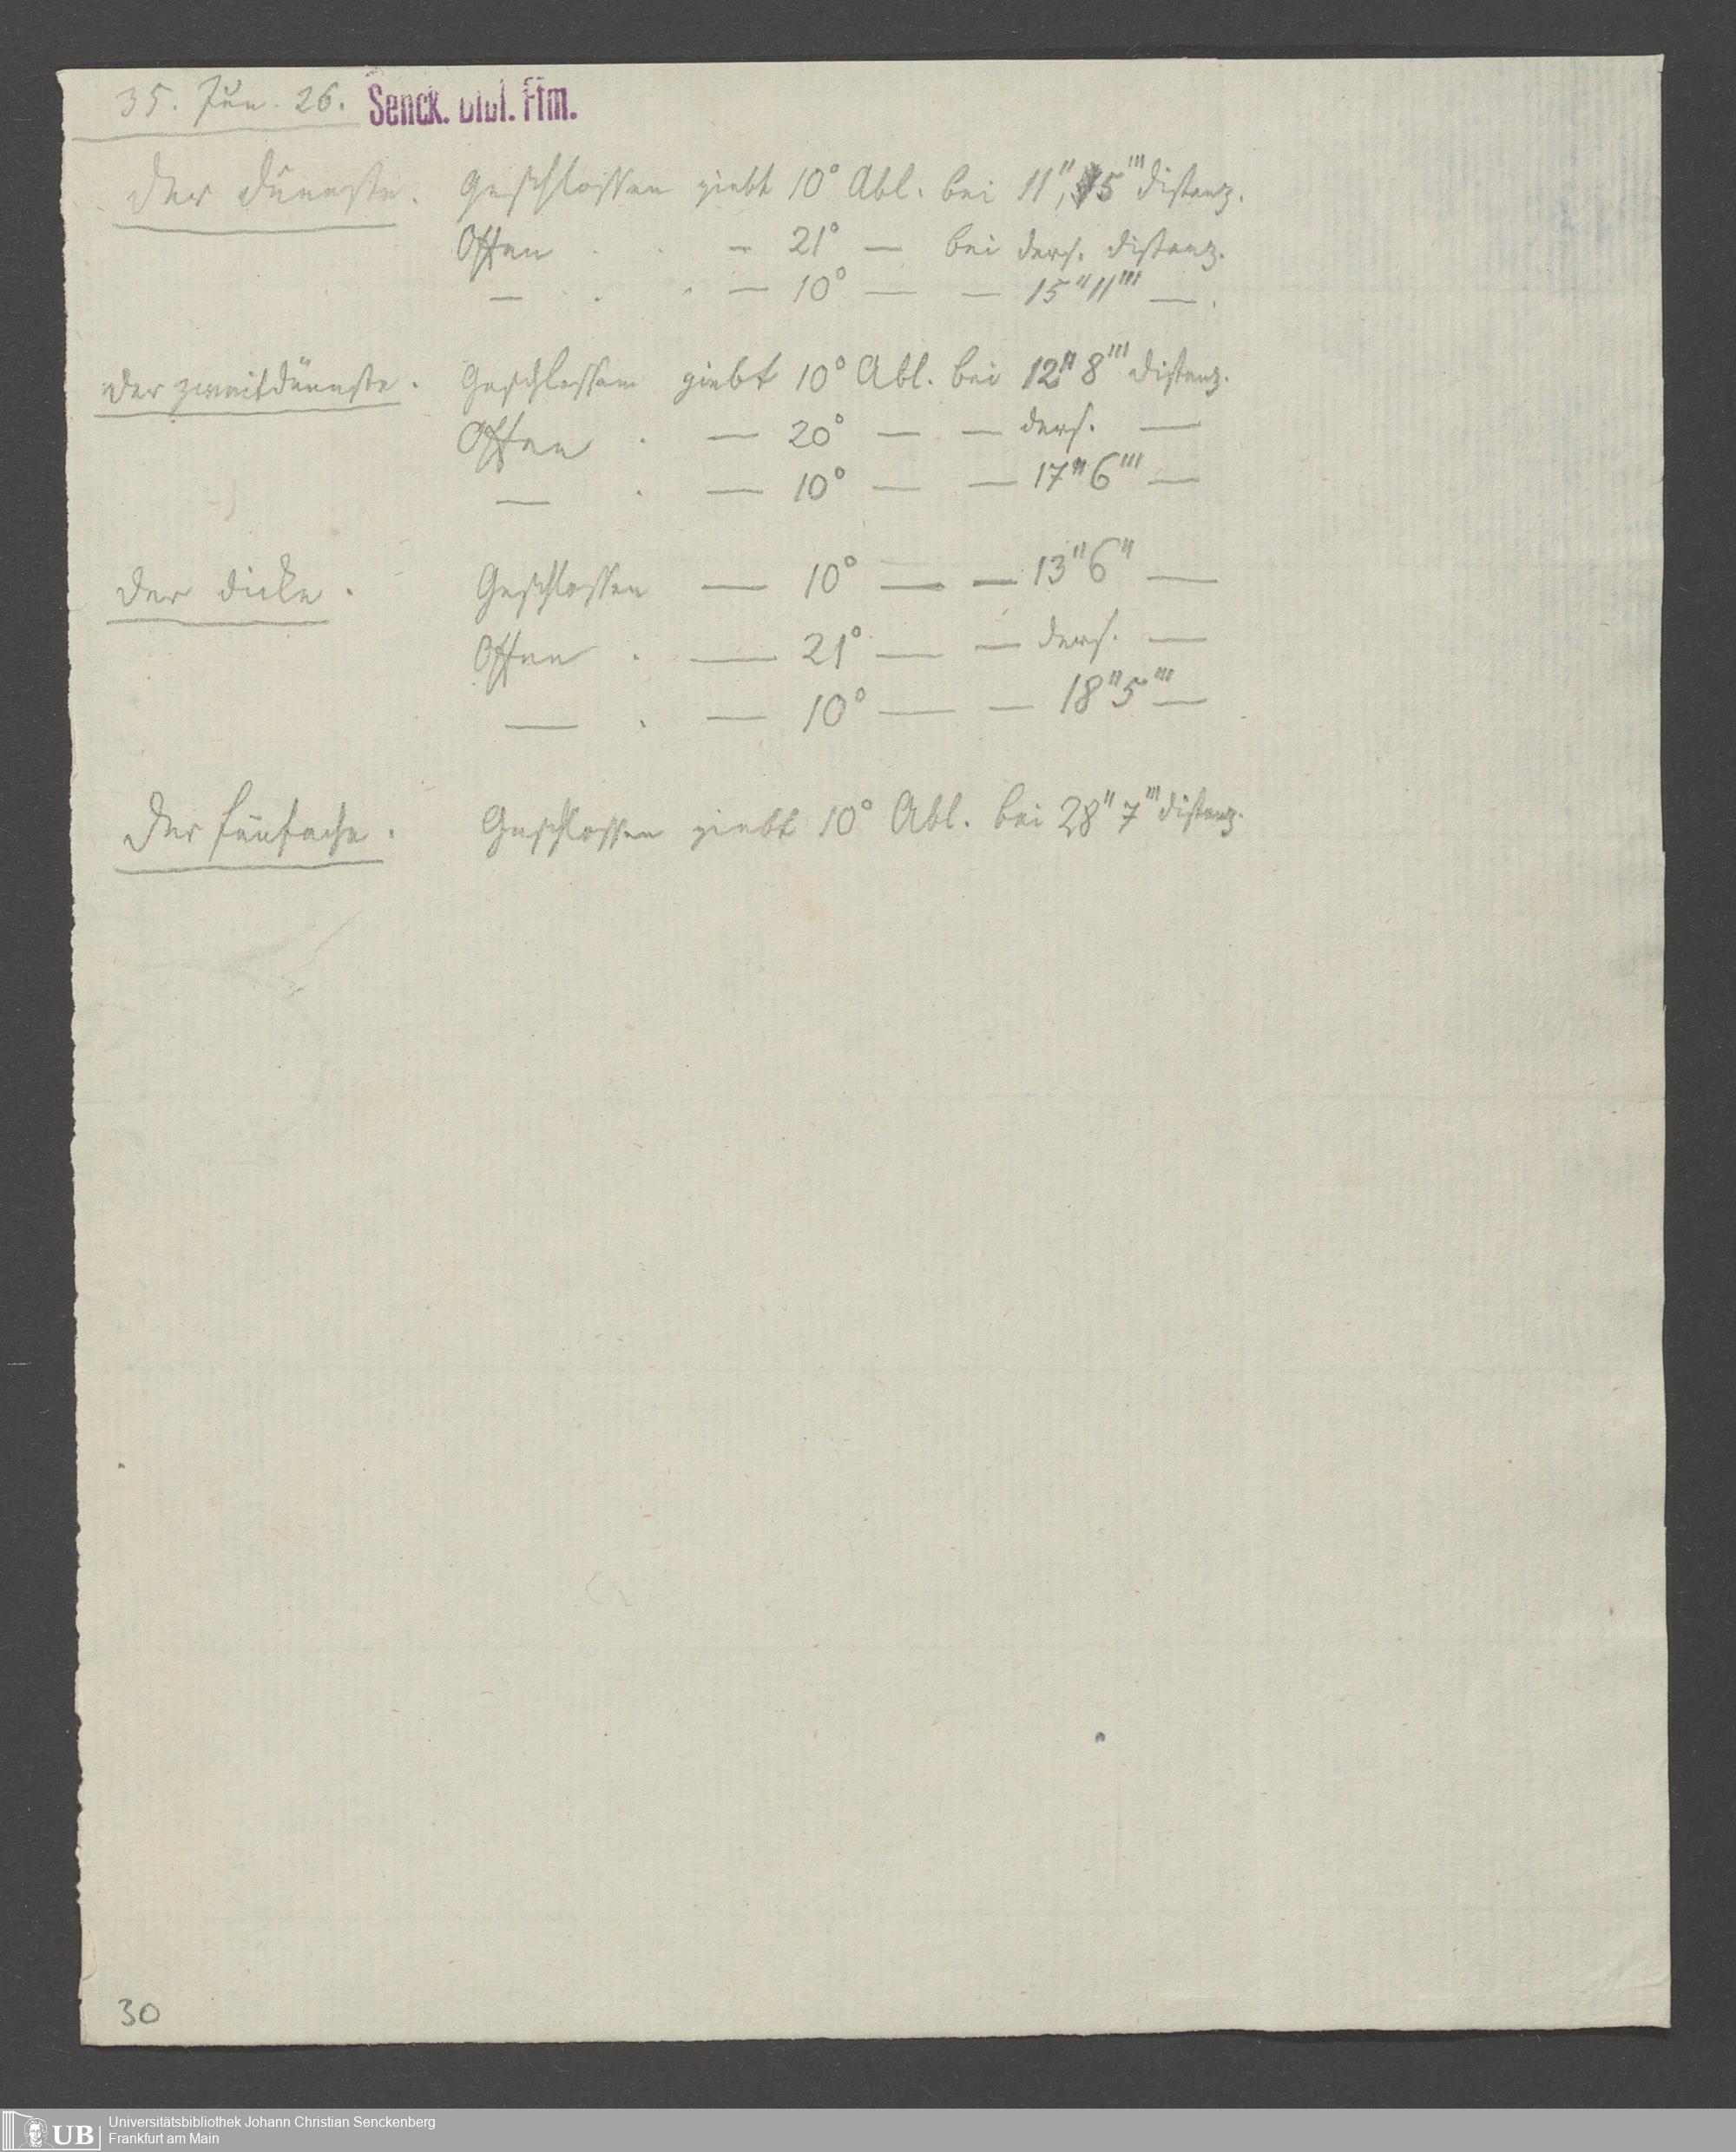 35. Jun. 26. Senck. Bibl. Ffm.
Der dünnste. Geschlossen giebt 10° Abl. bei 11", 5''' Distanz.
Offen . . — 21° — bei ders. Distanz.
— . . — 10° — — 15" 11''' — .
Der zweitdünnste. Geschlossen giebt 10° Abl. bei 12" 8''' Distanz.
Offen . — 20° — — ders. —
— . — 10° — — 17" 6''' —
Der dicke. Geschlossen — 10° — — 13" 6" —
Offen . — 21° — — ders. —
— . — 10° — — 18" 5''' —
Der fünfache. Geschlossen giebt 10° Abl. bei 28" 7''' Distanz.
30
UB Universitätsbibliothek Johann Christian Senckenberg
Frankfurt am Main